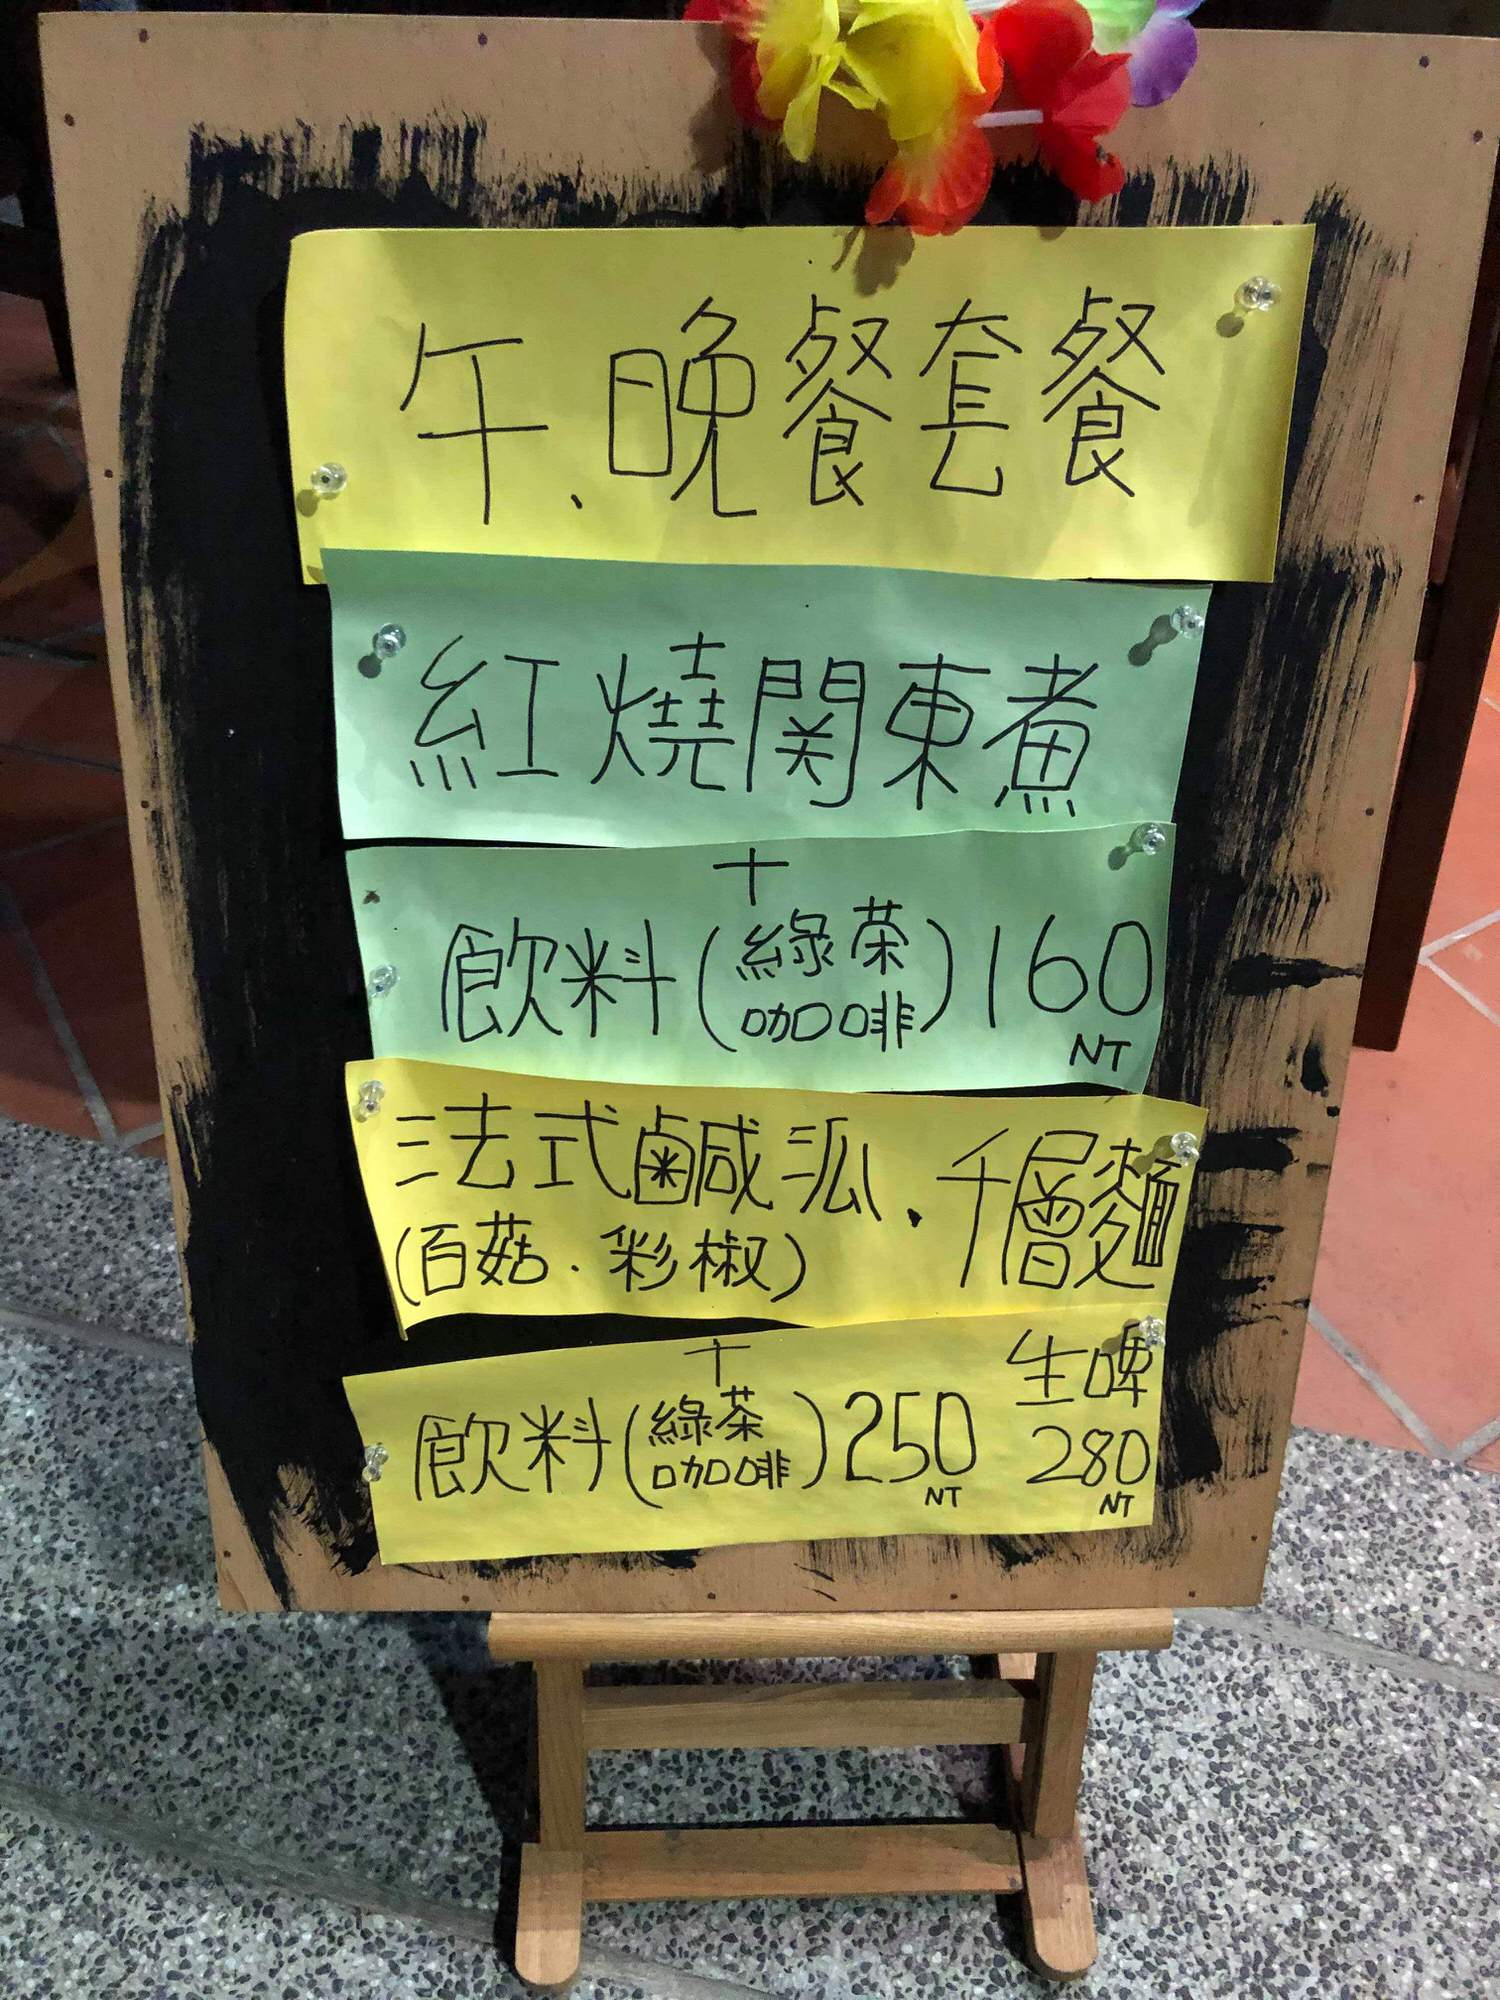 午、晚餐套餐
紅燒関東煮
+
飲料(綠茶 咖啡)160
NT
法式鹹派.千層麵
(百菇.彩椒)
+
飲料(綠茶 咖啡)250 NT
生啤
280
NT